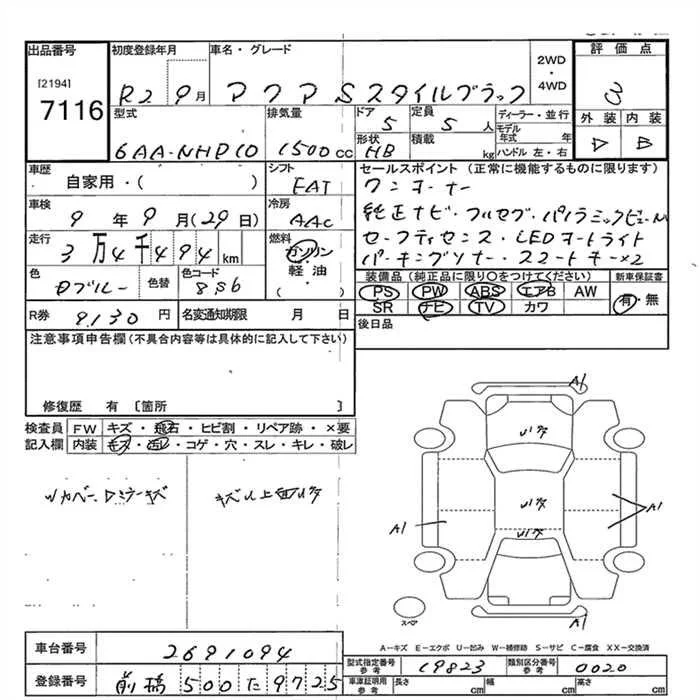 出品番号 初度登録年月 車名・グレード 2WD・4WD 評価点
[2194]
7116 R2 9月 アクア Sスタイルブラック 3
型式 排気量 ドア 定員 ディーラー・並行 外装 内装
6AA-NHP10 1500cc 5 5人 モデル年式 年 D B
形状 積載 ハンドル 左・右
HB kg
車歴 シフト セールスポイント (正常に機能するものに限ります)
自家用・( ) FAT ワンオーナー
車検 冷房 純正ナビ・フルセグ・パノラミックビューM
9年9月(29日) AAC セーフティセンス・LEDオートライト
走行 燃料 パーキングソナー・スマートキー×2
3万4千494km ガソリン・軽油・( )
色 色替 色コード 装備品 (純正品に限り○をつけてください) 新車保証書
Dブルー 8S6 PS PW ABS エアB AW 有・無
SR ナビ TV カワ
R券 9,130円 名変通知期限 月 日 後日品
注意事項申告欄 (不具合内容等は具体的に記入して下さい)
修復歴 有 〔箇所 〕
検査員記入欄 FW キズ・飛石・ヒビ割・リペア跡・×要
内装 キズ・汚レ・コゲ・穴・スレ・キレ・破レ
A1
A1
A1
A1
スペア
A-キズ E-エクボ U-凹み W-補修跡 S-サビ C-腐食 XX-交換済
車台番号 2691094 型式指定番号 参考 19823 類別区分番号 参考 0020
登録番号 前橋 500 た 9725 車庫証明用 参考 長さ cm 幅 cm 高さ cm